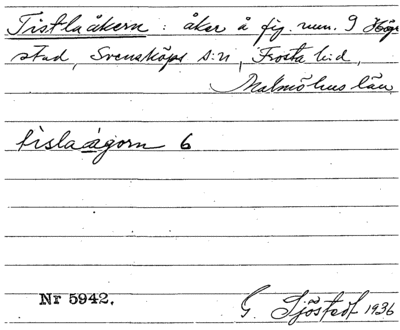 Tistlaåkern : åker å fig. num. 9 Hög-
stad, Svensköps s:n, Frosta h:d,
Malmöhus län
tislaágorn 6
Nr 5942.
G. Sjöstedt 1936